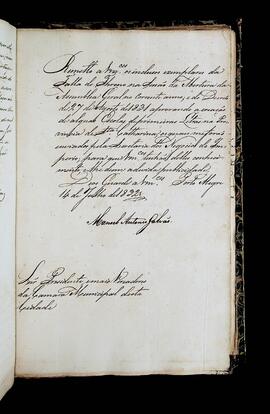 Remetto a Vm.ces os inclusos exemplares da
Falla do Throno na Sessão da Abertura da
Assemblea Geral no corrente anno, e do Decreto
de 27 de Agosto de 1831 approvando a creação
de algumas Escolas de primeiras Letras na Pro
vincia de Sta. Catharina; os quaes me forão
enviados pela Secretaria dos Negocios do Im
perio, para que Vm.ces tenhão delles conheci
mento, e lhe dem a devida publicidade.
Deos Guarde a Vm.ces Porto Alegre
14 de Julho de 1832.
Manoel Antonio Galvão
Snr. Presidente, e mais Vereadores
da Camara Municipal desta
Cidade